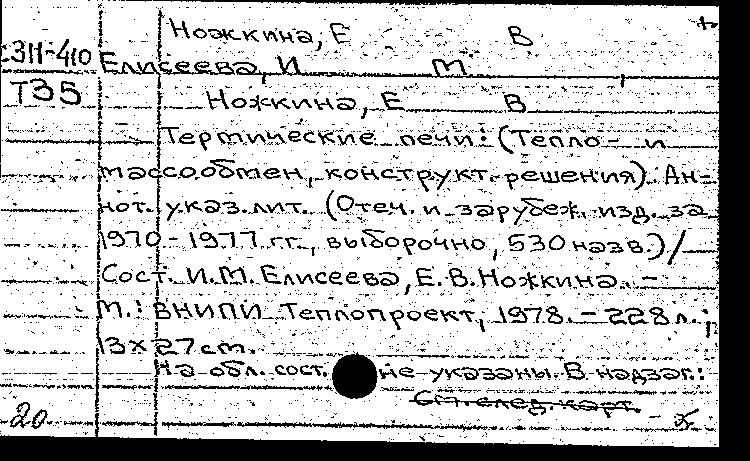 Ножкина, Е В
31-410 Елисеева, И М
Т35 Ножкина, Е В
Термические печи: (Тепло- и
массообмен, конструкт. решения). Ан-
нот. указ. лит. (Отеч. и зарубеж. изд. за
1970-1977 гг., выборочно, 530 назв.)/
Сост. И.М. Елисеева, Е.В. Ножкина. -
М.: ВНИПИ Теплопроект, 1978. - 228 л.;
13х27 см.
На обл. сост. не указаны. В надзаг.:
См. след. карт.
20